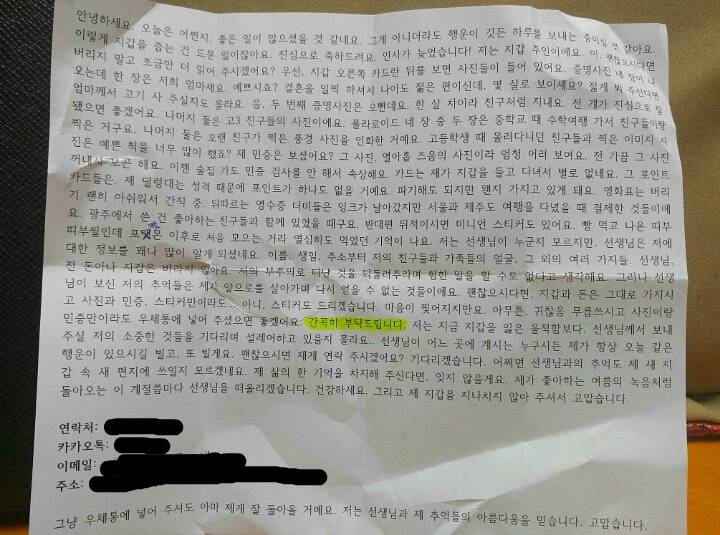 안녕하세요. 오늘은 어쩐지, 좋은 일이 많으셨을 것 같네요. 그게 아니더라도 행운이 깃든 하루를 보내는 중이실 것 같아요.
이렇게 지갑을 줍는 건 드문 일이잖아요. 진심으로 축하드려요. 인사가 늦었습니다! 저는 지갑 주인이에요. 아, 괜찮으시다면
버리지 말고 조금만 더 읽어 주시겠어요? 우선, 지갑 오른쪽 카드란 뒤를 보면 사진들이 들어 있어요. 증명사진 네 장이 나
오는데 한 장은 저희 엄마세요. 예쁘시죠? 결혼을 일찍 하셔서 나이도 젊은 편이신데, 몇 살로 보이세요? 젊게 봐 주신다면
엄마께서 고기 사 주실지도 몰라요. 음, 두 번째 증명사진은 오빤데요. 한 살 차이라 친구처럼 지내요. 전 걔가 진심으로 잘
됐으면 좋겠어요. 나머지 둘은 고3 친구들의 사진이에요. 폴라로이드 네 장 중 두 장은 중학교 때 수학여행 가서 친구들이랑
찍은 거구요. 나머지 둘은 오랜 친구가 찍은 풍경 사진을 인화한 거예요. 고등학생 때 몰려다니던 친구들과 찍은 이미지 사
진은 예쁜 척을 너무 많이 했죠? 제 민증은 보셨어요? 그 사진, 열아홉 즈음의 사진이라 엄청 어려 보여요. 전 가끔 그 사진
꺼내서 보곤 해요. 이젠 술집 가도 민증 검사를 안 해서 속상해요. 카드는 제가 지갑을 들고 다녀서 별로 없네요. 그 포인트
카드들은, 제 덜렁대는 성격 때문에 포인트가 하나도 없을 거예요. 파기해도 되지만 왠지 가지고 있게 돼요. 영화표는 버리
기 괜히 아쉬워서 간직 중. 뒤따르는 영수증 더미들은 잉크가 날아갔지만 서울과 제주도 여행을 다녔을 때 결제한 것들이에
요. 광주에서 쓴 건 좋아하는 친구들과 함께 있었을 때구요. 반대편 뒤적이시면 미니언 스티커도 있어요. 빵 먹고 나온 띠부
띠부씰인데 포켓몬 이후로 처음 모으는 거라 열심히도 먹었던 기억이 나요. 저는 선생님이 누군지 모르지만, 선생님은 저에
대한 정보를 꽤나 많이 알게 되셨네요. 이름, 생일, 주소부터 저의 친구들과 가족들의 얼굴, 그 외의 여러 가지들. 선생님,
전 돈이나 지갑은 바라지 않아요. 저의 부주의로 떠난 것을 되돌려주라며 험한 말을 할 수도 없다고 생각해요. 그러나 선생
님이 보신 저의 추억들은 제가 앞으로를 살아가며 다시 얻을 수 없는 것들이에요. 괜찮으시다면, 지갑과 돈은 그대로 가지시
고 사진과 민증, 스티커만이라도... 아니, 스티커도 드리겠습니다. 마음이 찢어지지만요. 아무튼, 귀찮음 무릅쓰시고 사진이랑
민증만이라도 우체통에 넣어 주셨으면 좋겠어요. 간곡히 부탁드립니다. 저는 지금 지갑을 잃은 울적함보다, 선생님께서 보내
주실 저의 소중한 것들을 기다리며 설레어하고 있을지 몰라요. 선생님이 어느 곳에 계시는 누구시든 제가 항상 오늘 같은
행운이 있으시길 빌고, 또 빌게요. 괜찮으시면 제게 연락 주시겠어요? 기다리겠습니다. 어쩌면 선생님과의 추억도 제 새 지
갑 속 새 편지에 쓰일지 모르겠네요. 제 삶의 한 기억을 차지해 주신다면, 잊지 않을게요. 제가 좋아하는 여름의 녹음처럼
돌아오는 이 계절쯤마다 선생님을 떠올리겠습니다. 건강하세요. 그리고 제 지갑을 지나치지 않아 주셔서 고맙습니다.
연락처:
카카오톡:
이메일:
주소:
그냥 우체통에 넣어 주셔도 아마 제게 잘 돌아올 거예요. 저는 선생님과 제 추억들의 아름다움을 믿습니다. 고맙습니다.